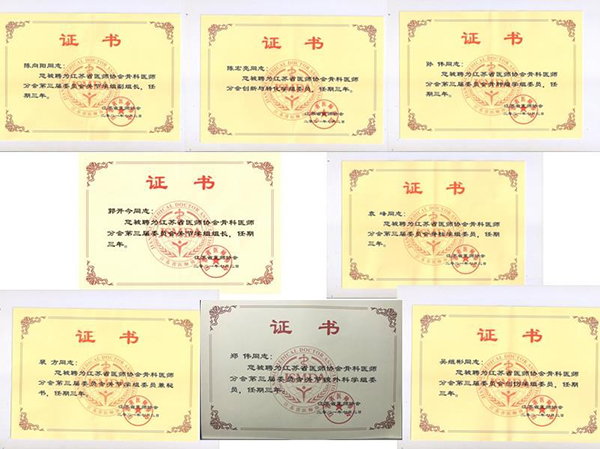 证书
陈向阳同志：
您被聘为江苏省医师协会骨科医师
分会第三届委员会关节学组副组长，任
期三年。
江苏省医师协会
证书
陈宏亮同志：
您被聘为江苏省医师协会骨科医师
分会创新与转化学组委员，任期三年。
江苏省医师协会
证书
孙伟同志：
您被聘为江苏省医师协会骨科医师
分会第三届委员会骨肿瘤学组委员，任
期三年。
江苏省医师协会
证书
郭开今同志：
您被聘为江苏省医师协会骨科医师
分会第三届委员会关节学组组长，任期
三年。
江苏省医师协会
证书
袁峰同志：
您被聘为江苏省医师协会骨科医师
分会第三届委员会脊柱学组委员，任期
三年。
江苏省医师协会
证书
方同志：
您被聘为江苏省医师协会骨科医师
分会第三届委员会关节学组委员兼秘
书，任期三年。
江苏省医师协会
证书
郑伟同志：
您被聘为江苏省医师协会骨科医师
分会第三届委员会关节镜外科学组委
员，任期三年。
证书
吴继彬同志：
您被聘为江苏省医师协会骨科医师
分会第三届委员会创伤学组委员，任期
三年。
江苏省医师协会